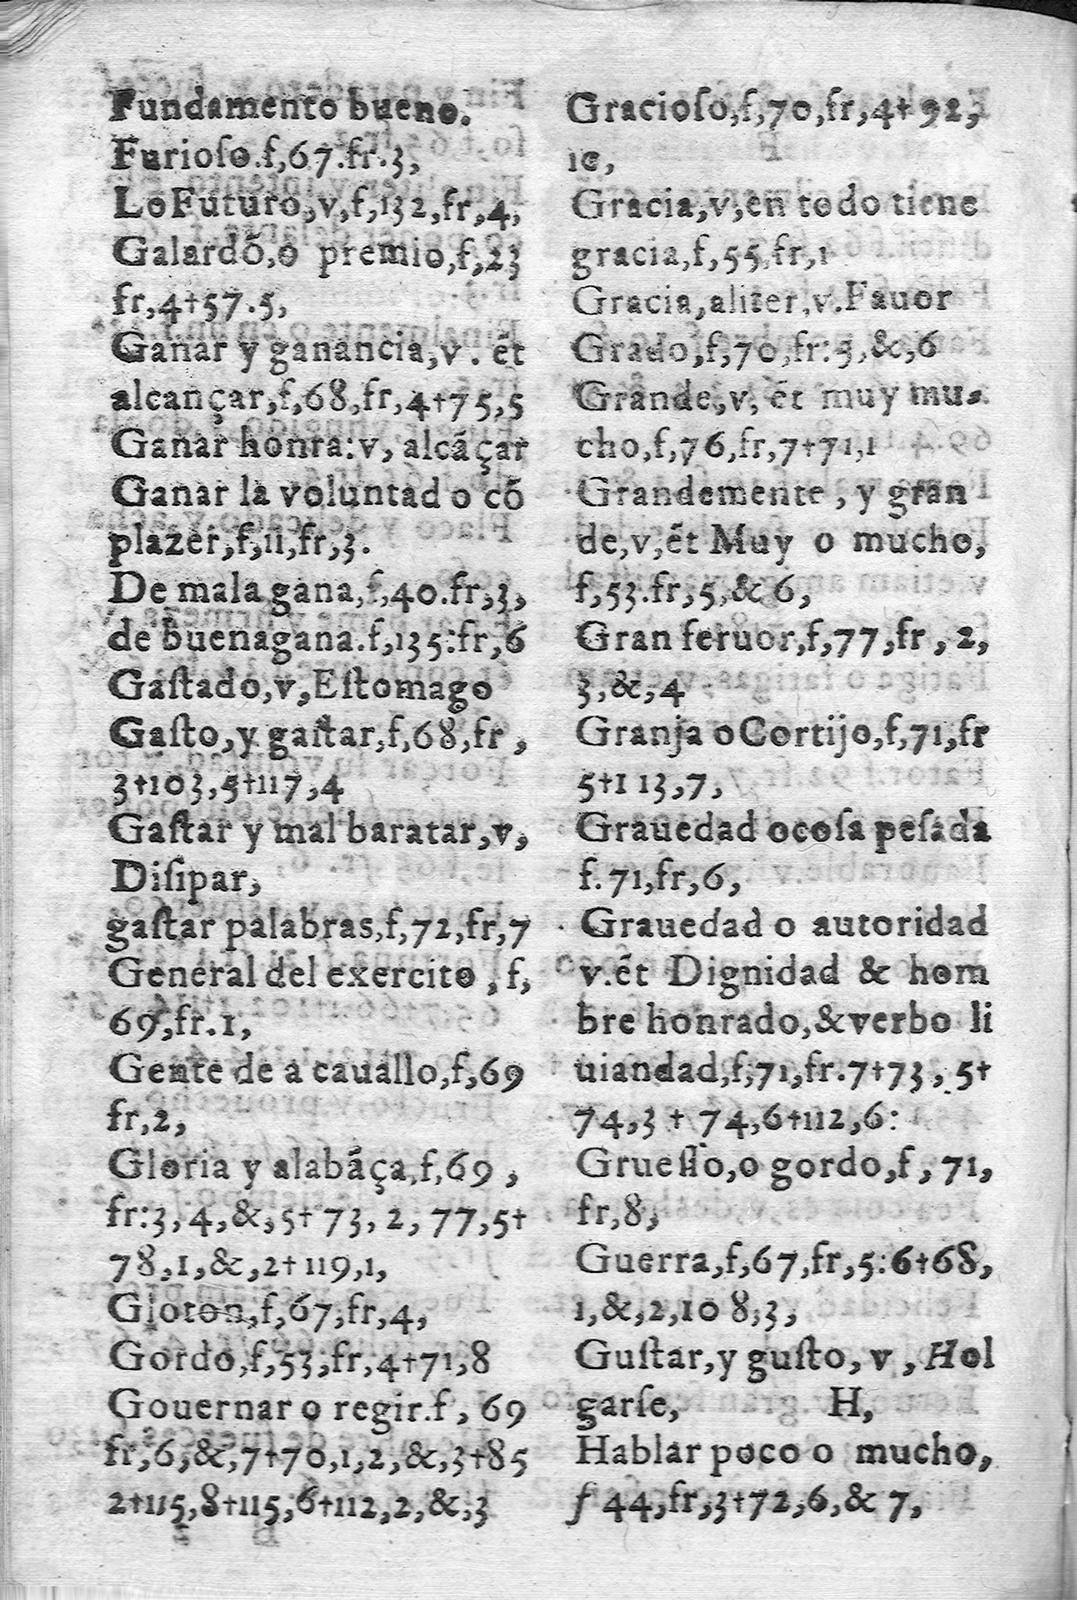 Fundamento bueno.
Furioſo.f,67.fr.3,
Lo Futuro,v,f,132,fr,4,
Galardõ,o premio,f,23
fr,4†57.5,
Ganar y ganancia,v. ét
alcançar,f,68,fr,4†75,5
Ganar honra:v, alcãçar
Ganar la voluntad o cõ
plazer,f,11,fr,3.
De mala gana,f,40.fr,3,
de buenagana.f,135:fr,6
Gaſtado,v,Eſtomago
Gaſto,y gaſtar,f,68,fr,
3†103,5†117,4
Gaſtar y mal baratar,v,
Diſipar,
gaſtar palabras,f,72,fr,7
General del exercito,f,
69,fr.1,
Gente de a cauallo,f,69
fr,2,
Gloria y alabãça,f,69,
fr:3,4,&,5†73,2,77,5†
78,1,&,2†119,1,
Gloton,f,67,fr,4,
Gordo,f,53,fr,4†71,8
Gouernar o regir.f,69
fr,6,&,7†70,1,2,&,3†85
2†115,8†115,6†112,2,&,3
Gracioſo,f,70,fr,4†92,
10,
Gracia,v,en todo tiene
gracia,f,55,fr,1
Gracia,aliter,v.Fauor
Grado,f,70,fr:5,&,6
Grande,v, ét muy mu-
cho,f,76,fr,7†71,1
Grandemente, y gran
de,v,ét Muy o mucho,
f,53.fr,5,& 6,
Gran feruor,f,77,fr,2,
3,&,4
Granja o Cortijo,f,71,fr
5†113,7,
Grauedad ocoſa peſada
f.71,fr,6,
Grauedad o autoridad
v.ét Dignidad & hom
bre honrado,&verbo li
uiandad,f,71,fr.7†73,5†
74,3†74,6†112,6:
Grueſſo,o gordo,f,71,
fr,8,
Guerra,f,67,fr,5:6†68,
1,&,2,108,3,
Guſtar,y guſto,v,Hol
garſe, H,
Hablar poco o mucho,
f 44,fr,3†72,6,& 7,